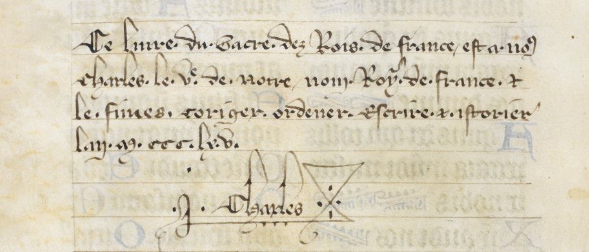 Ce livre du sacre dez Rois de france est a no9
Charles le Ve de notre nom Roy de france et
le fimes coriger ordener Escrire et istorier
l an m ccc lxv
Charles